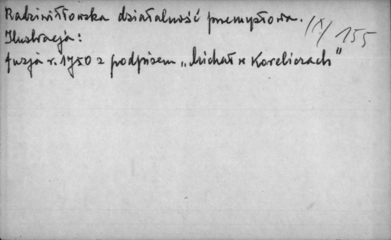 Radziwiłłowska działalność przemysłowa. /X/ 155
Ilustracja:
fuzja r. 1750 z podpisem „Michał w Koreliczach"